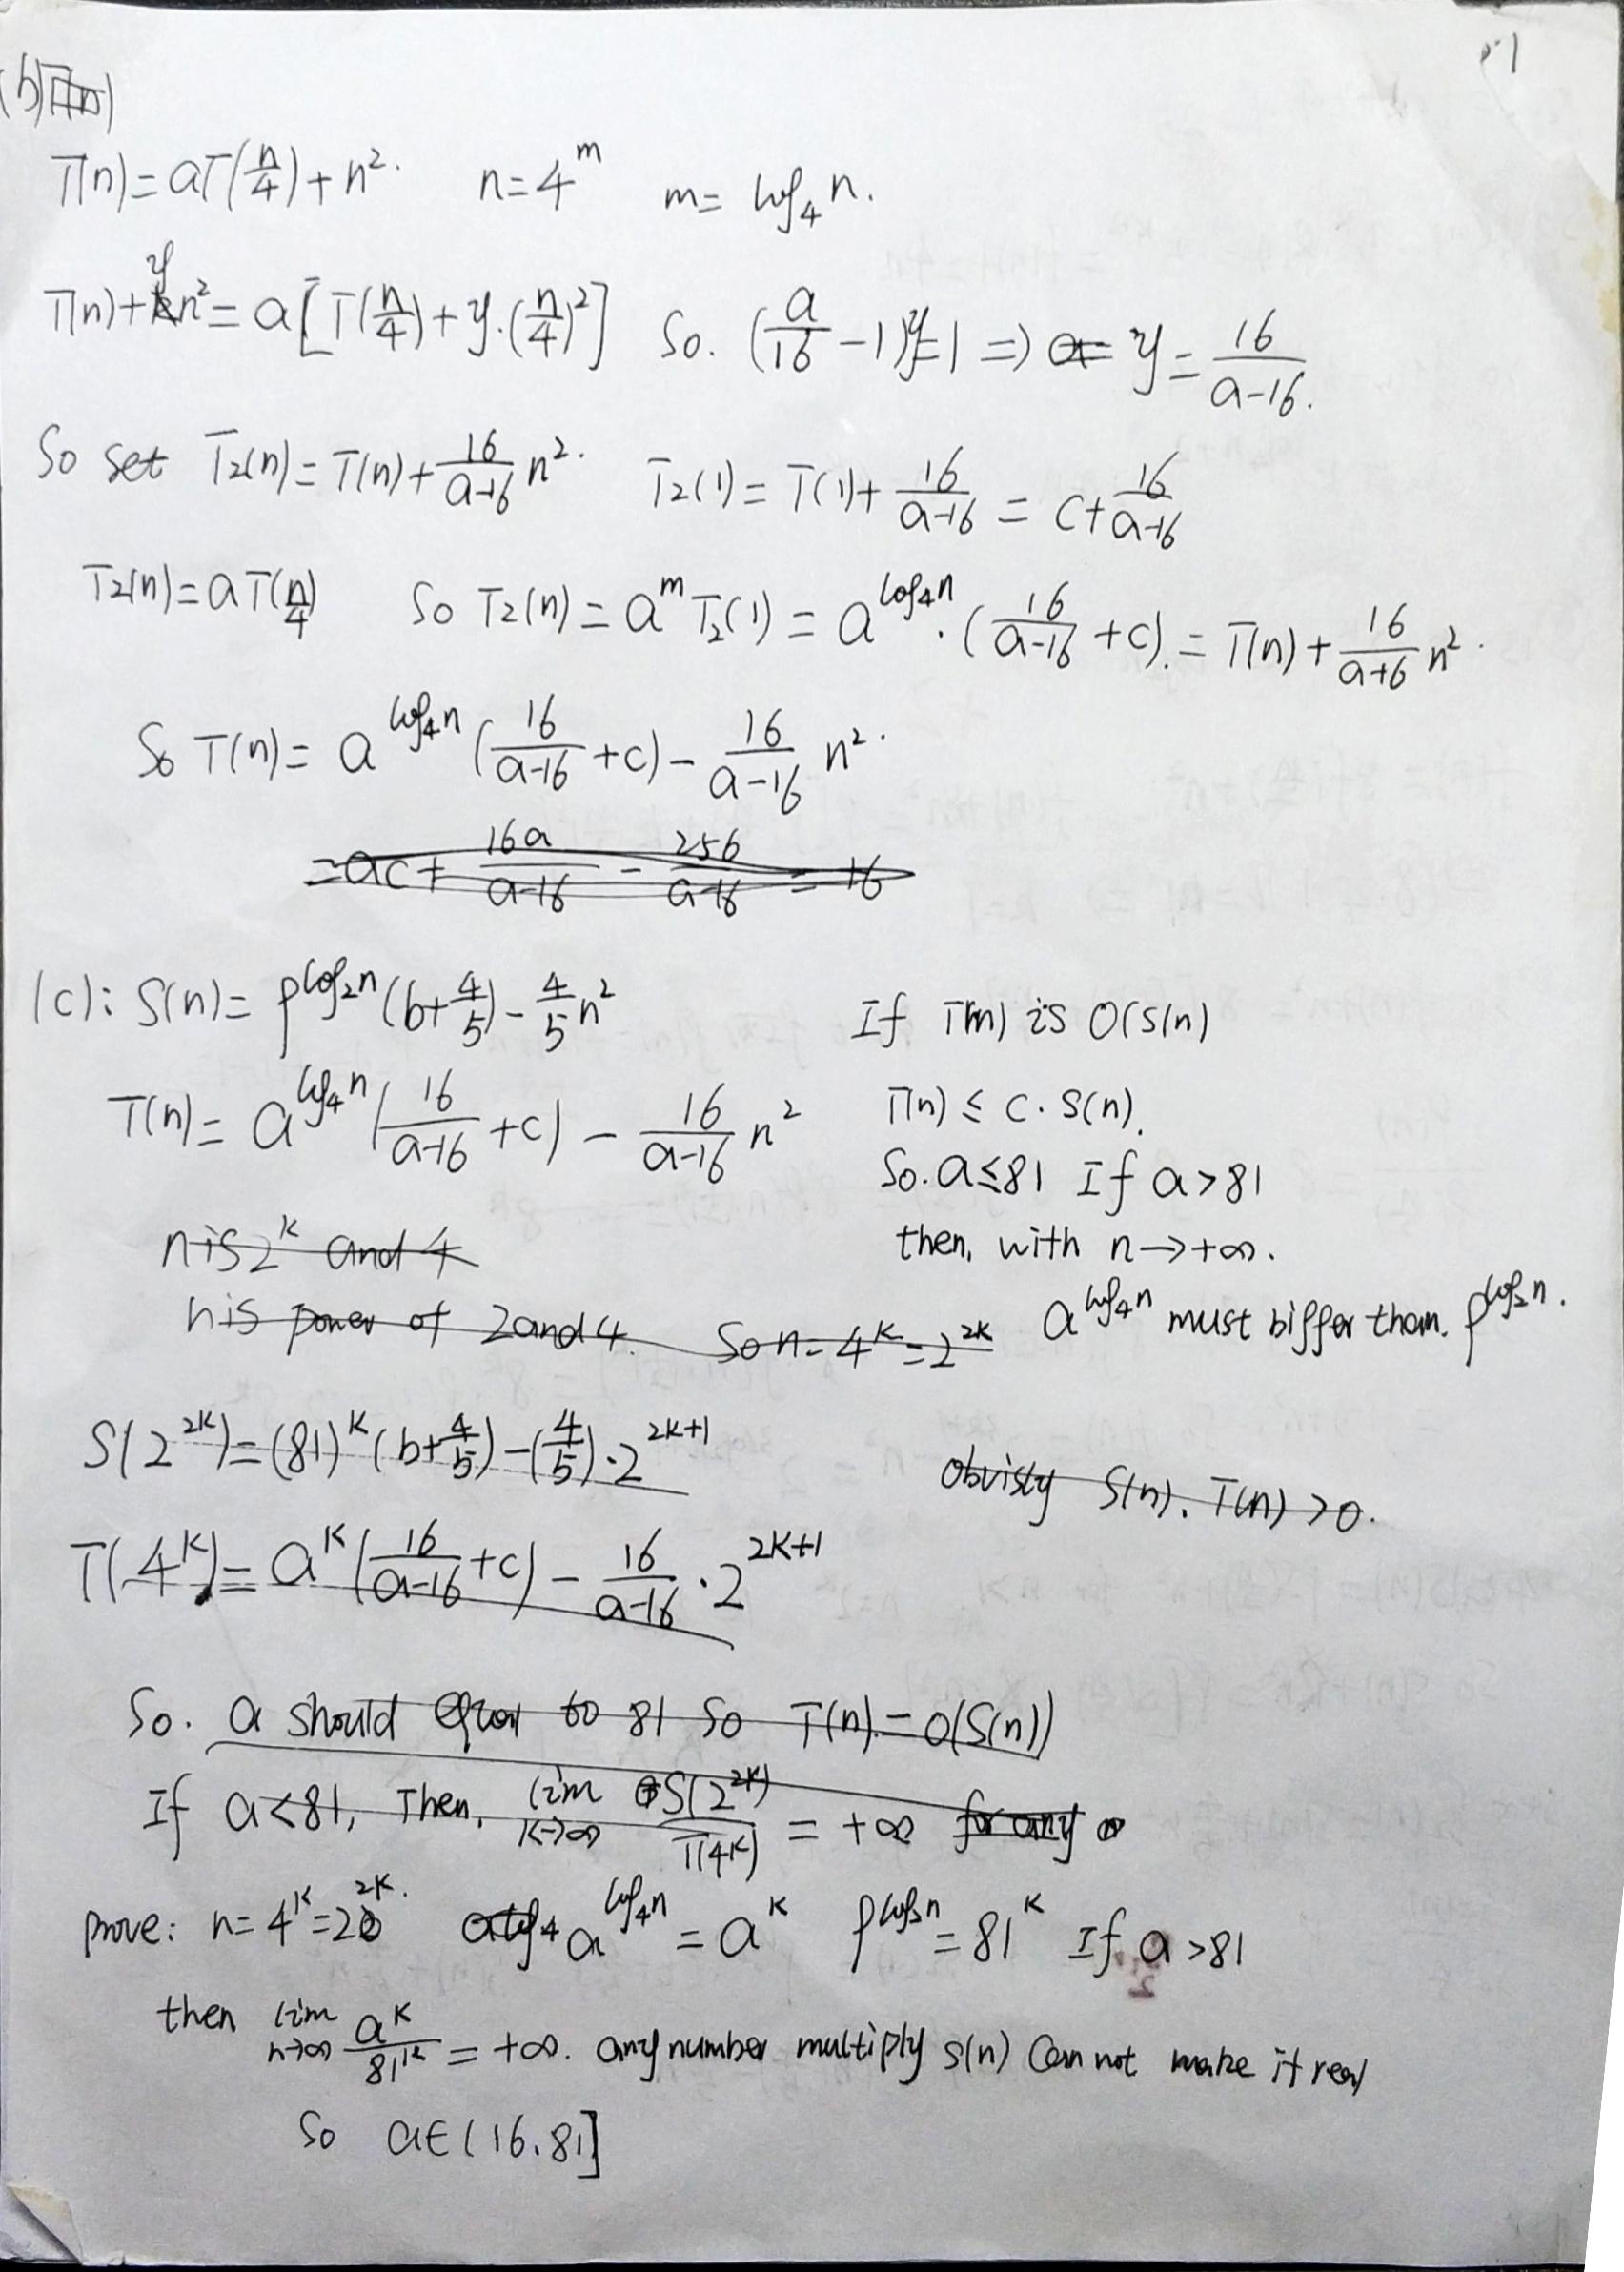 (b)
T(n)=aT(n/4)+n². n=4^m m=log₄n.
T(n)+yn²=a[T(n/4)+y·(n/4)²] So. (a/16-1)y=1 => y=16/(a-16).
So set T₂(n)=T(n)+16/(a-16) n². T₂(1)=T(1)+16/(a-16)=c+16/(a-16)
T₂(n)=aT(n/4) So T₂(n)=a^m T₂(1)=a^(log₄n)·(16/(a-16)+c).=T(n)+16/(a+6) n².
So T(n)=a^(log₄n)(16/(a-16)+c)-16/(a-16) n².
=ac+16a/(a-16)-256/(a-16)=16
(c): S(n)=9^(log₂n)(b+4/5)-4/5 n² If T(n) is O(S(n)
T(n)=a^(log₄n)(16/(a-16)+c)-16/(a-16) n² T(n)≤c·S(n).
So. a≤81 If a>81
n is 2^k and 4 then, with n→+∞.
n is power of 2 and 4. So n=4^k=2^(2k) a^(log₄n) must bigger than. 9^(log₂n).
S(2^(2k))=(81)^k(b+4/5)-(4/5)·2^(2k+1)
obvisly S(n). T(n)>0.
T(4^k)=a^k(16/(a-16)+c)-16/(a-16)·2^(2k+1)
So. a should equal to 81 so T(n)=O(S(n))
If a<81, Then, lim k→∞ S(2^(2k))/T(4^k)=+∞ for any
prove: n=4^k=2^(2k). a^(log₄n)=a^k 9^(log₂n)=81^k If a>81
then lim n→∞ a^k/81^k=+∞. any number multiply s(n) Can not make it real
So a∈(16.81]